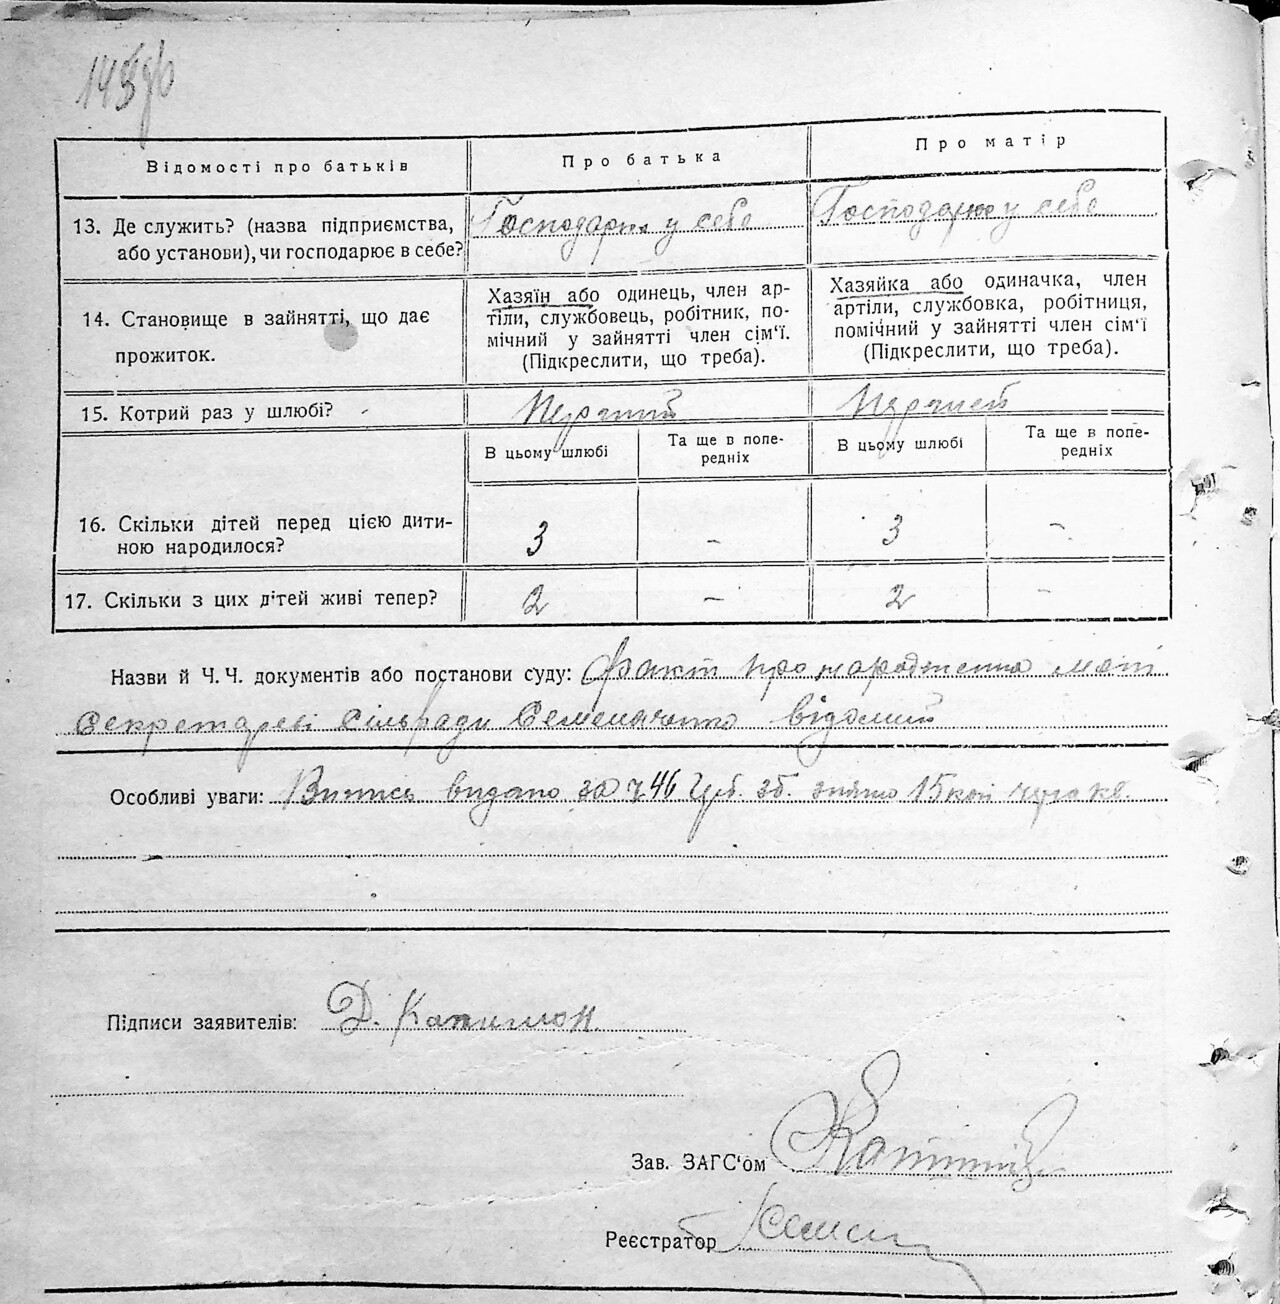 Відомості про батьків
Про батька
Про матір
13. Де служить? (назва підприємства, або установи), чи господарює в себе?
Господарює у себе
Господарює у себе
14. Становище в зайнятті, що дає прожиток.
Хазяїн або одинець, член ар-
тіли, службовець, робітник, по-
мічний у зайнятті член сім'ї.
(Підкреслити, що треба).
Хазяйка або одиначка, член
артіли, службовка, робітниця,
помічний у зайнятті член сім'ї
(Підкреслити, що треба).
15. Котрий раз у шлюбі?
В цьому шлюбі
Та ще в попе-
редніх
В цьому шлюбі
Та ще в попе-
редніх
16. Скільки дітей перед цією дити-
ною народилося?
3
-
3
-
17. Скільки з цих дітей живі тепер?
2
-
2
-
Назви й Ч. Ч. документів або постанови суду: Факт про народження мені
секретареві сільради Семененко відомий
Особливі уваги: Випись видано за ч 46 зб. знято 15 коп
Підписи заявителів: Д.
Зав. ЗАГС'ом
Реєстратор